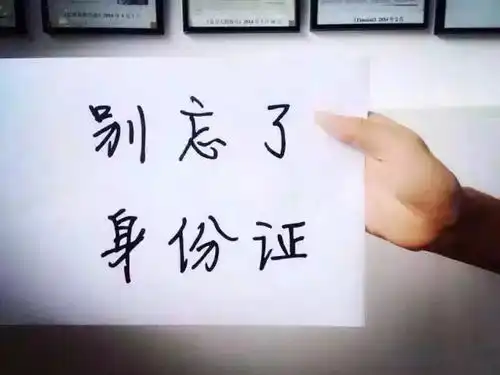 别忘了
身份证